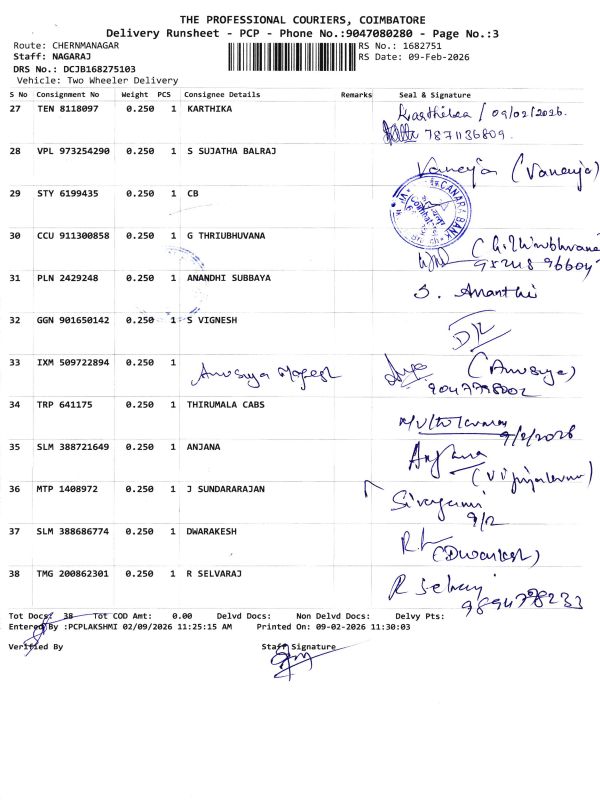 THE PROFESSIONAL COURIERS, COIMBATORE
Delivery Runsheet - PCP - Phone No.:9047080280 - Page No.:3
Route: CHERNMANAGAR RS No.: 1682751
Staff: NAGARAJ RS Date: 09-Feb-2026
DRS No.: DCJB168275103
Vehicle: Two Wheeler Delivery
S No Consignment No Weight PCS Consignee Details Remarks Seal & Signature
27 TEN 8118097 0.250 1 KARTHIKA Karthika / 09/02/2026.
7871136809.
28 VPL 973254290 0.250 1 S SUJATHA BALRAJ Vanaja (Vanaja)
29 STY 6199435 0.250 1 CB CANARA BANK
30 CCU 911300858 0.250 1 G THRIUBHUVANA
31 PLN 2429248 0.250 1 ANANDHI SUBBAYA S. Ananthi
32 GGN 901650142 0.250 1 S VIGNESH
33 IXM 509722894 0.250 1 Anusya (Anusya)
34 TRP 641175 0.250 1 THIRUMALA CABS
9/2/2026
35 SLM 388721649 0.250 1 ANJANA Anjana
36 MTP 1408972 0.250 1 J SUNDARARAJAN Sivagami
9/2
37 SLM 388686774 0.250 1 DWARAKESH
38 TMG 200862301 0.250 1 R SELVARAJ R Selvaraj
Tot Docs: 38 Tot COD Amt: 0.00 Delvd Docs: Non Delvd Docs: Delvy Pts:
Entered By :PCPLAKSHMI 02/09/2026 11:25:15 AM Printed On: 09-02-2026 11:30:03
Verified By Staff Signature